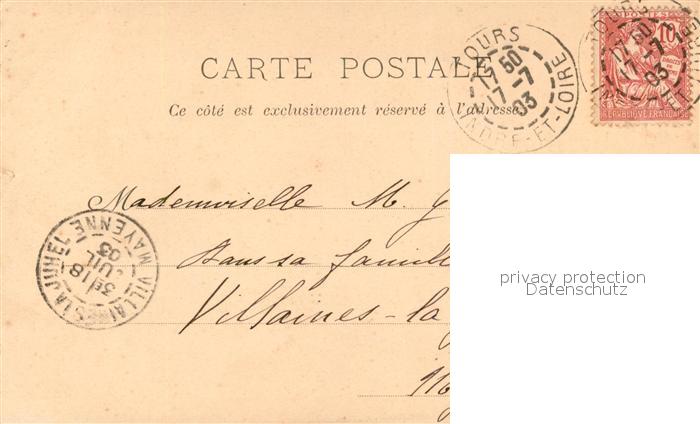 CARTE POSTALE
Ce côté est exclusivement réservé à l'adresse
TOURS
17 50
17-7
03
INDRE-ET-LOIRE
POSTES
10
RÉPUBLIQUE FRANÇAISE
TOURS
17 50
17-7
03
Mademoiselle M. G
dans sa famille
Villaines-la
VILLAINES LA JUHEL
3E/18
JUIL
03
MAYENNE
privacy protection
Datenschutz